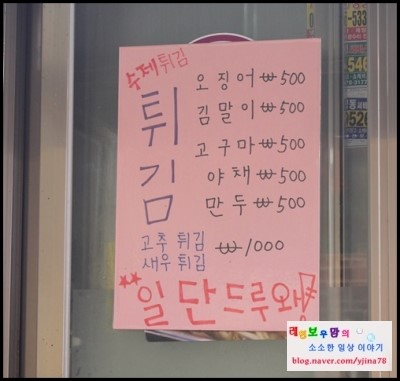 수제튀김
튀김
오징어 ₩500
김말이 ₩500
고구마 ₩500
야채 ₩500
만두 ₩500
고추 튀김
새우 튀김
₩1000
**일단드루와!
레인보우맘의
소소한 일상 이야기
blog.naver.com/yjina78